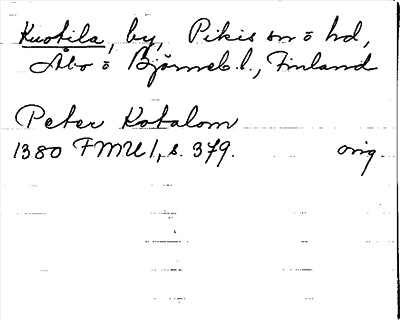 Kuotila, by, Pikis sn o hd,
Åbo o Björneb. l., Finland
Peter Kotalom
1380 FMU 1, s. 379. orig.